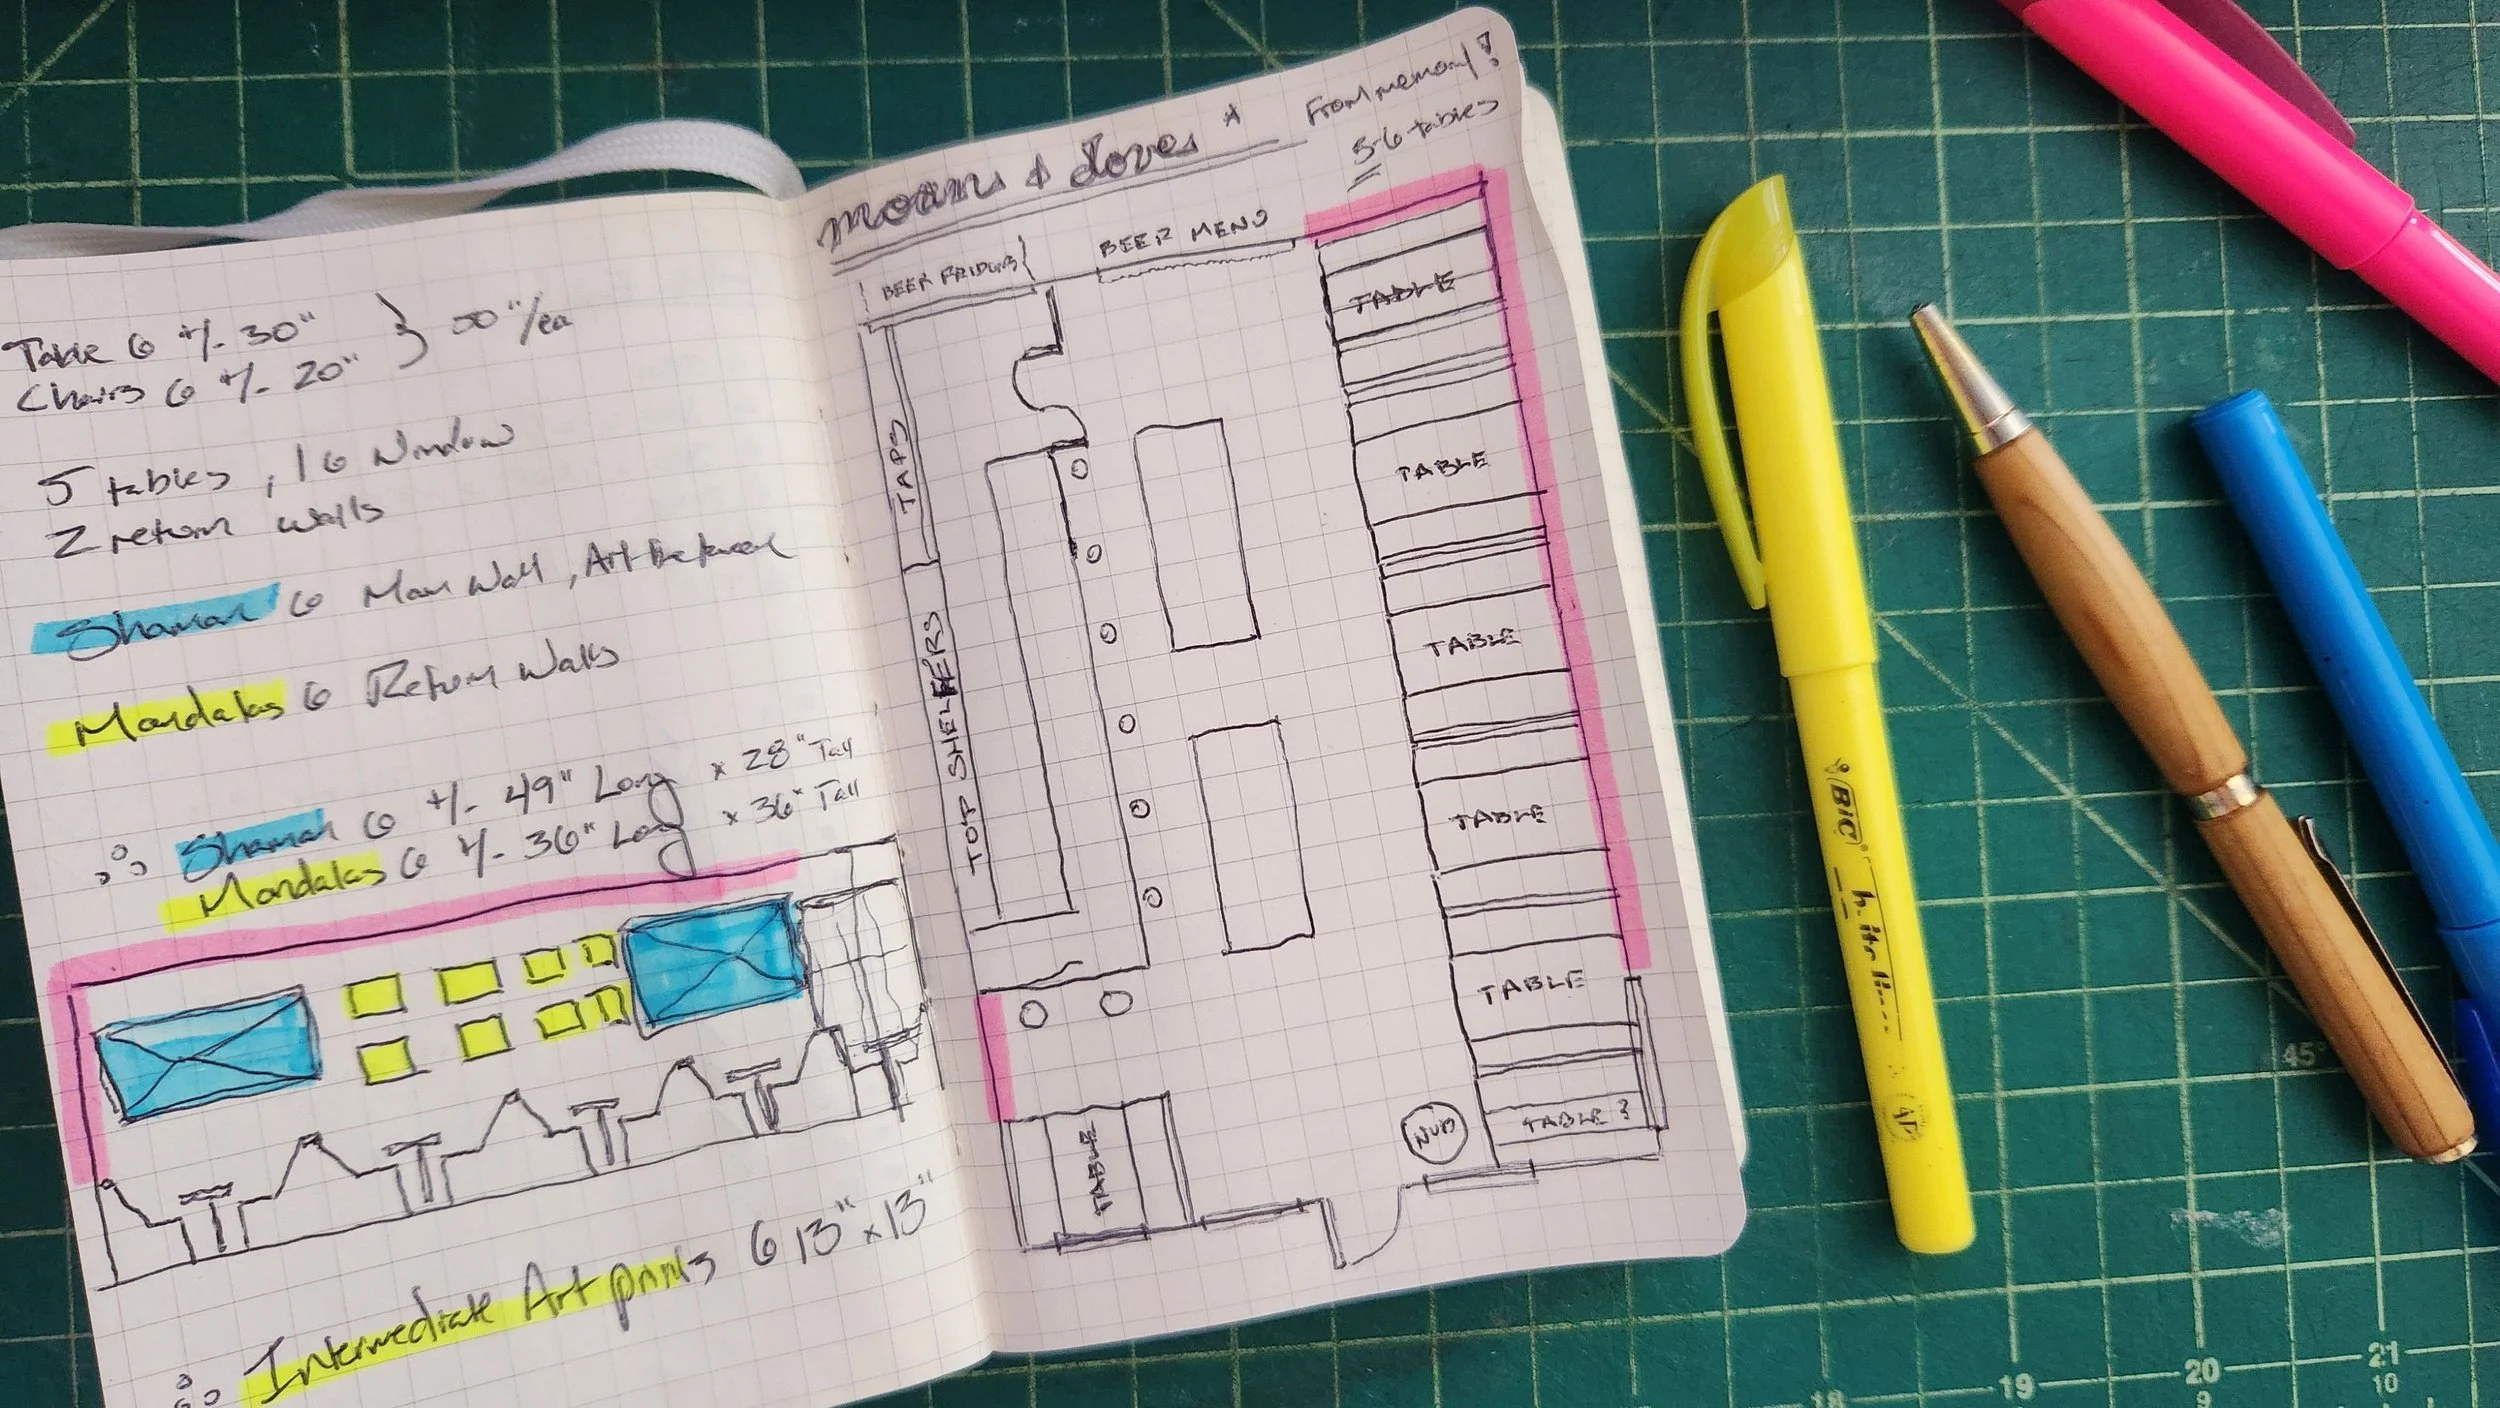 Table @ +/- 30"
Chairs @ +/- 20" } 50"/ea
5 tables, 1 @ Window
2 return walls
Shaman @ Main Wall, Art Between
Mandalas @ Return Walls
Shaman @ +/- 49" Long x 28" Tall
Mandalas @ +/- 36" Long x 36" Tall
Intermediate Art prints @ 13" x 13"
moans & doves *
From memory!
5-6 tables
BEER FRIDGES
BEER MENU
TAPS
TOP SHELFERS
TABLE
TABLE
TABLE
TABLE
TABLE
TABLE ?
TABLE
BIC
Brite Liner
45°
18
19
20
21
9
10